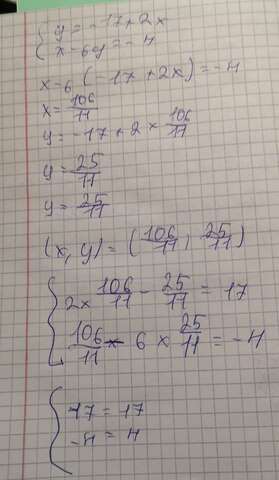 { y = -17+2x
x-6y = -4
x-6 (-17+2x) = -4
x = 106/11
y = -17+2 × 106/11
y = 25/11
y = 25/11
(x, y) = (106/11, 25/11)
{ 2× 106/11 - 25/11 = 17
106/11 - 6 × 25/11 = -4
{ 17 = 17
-4 = 4